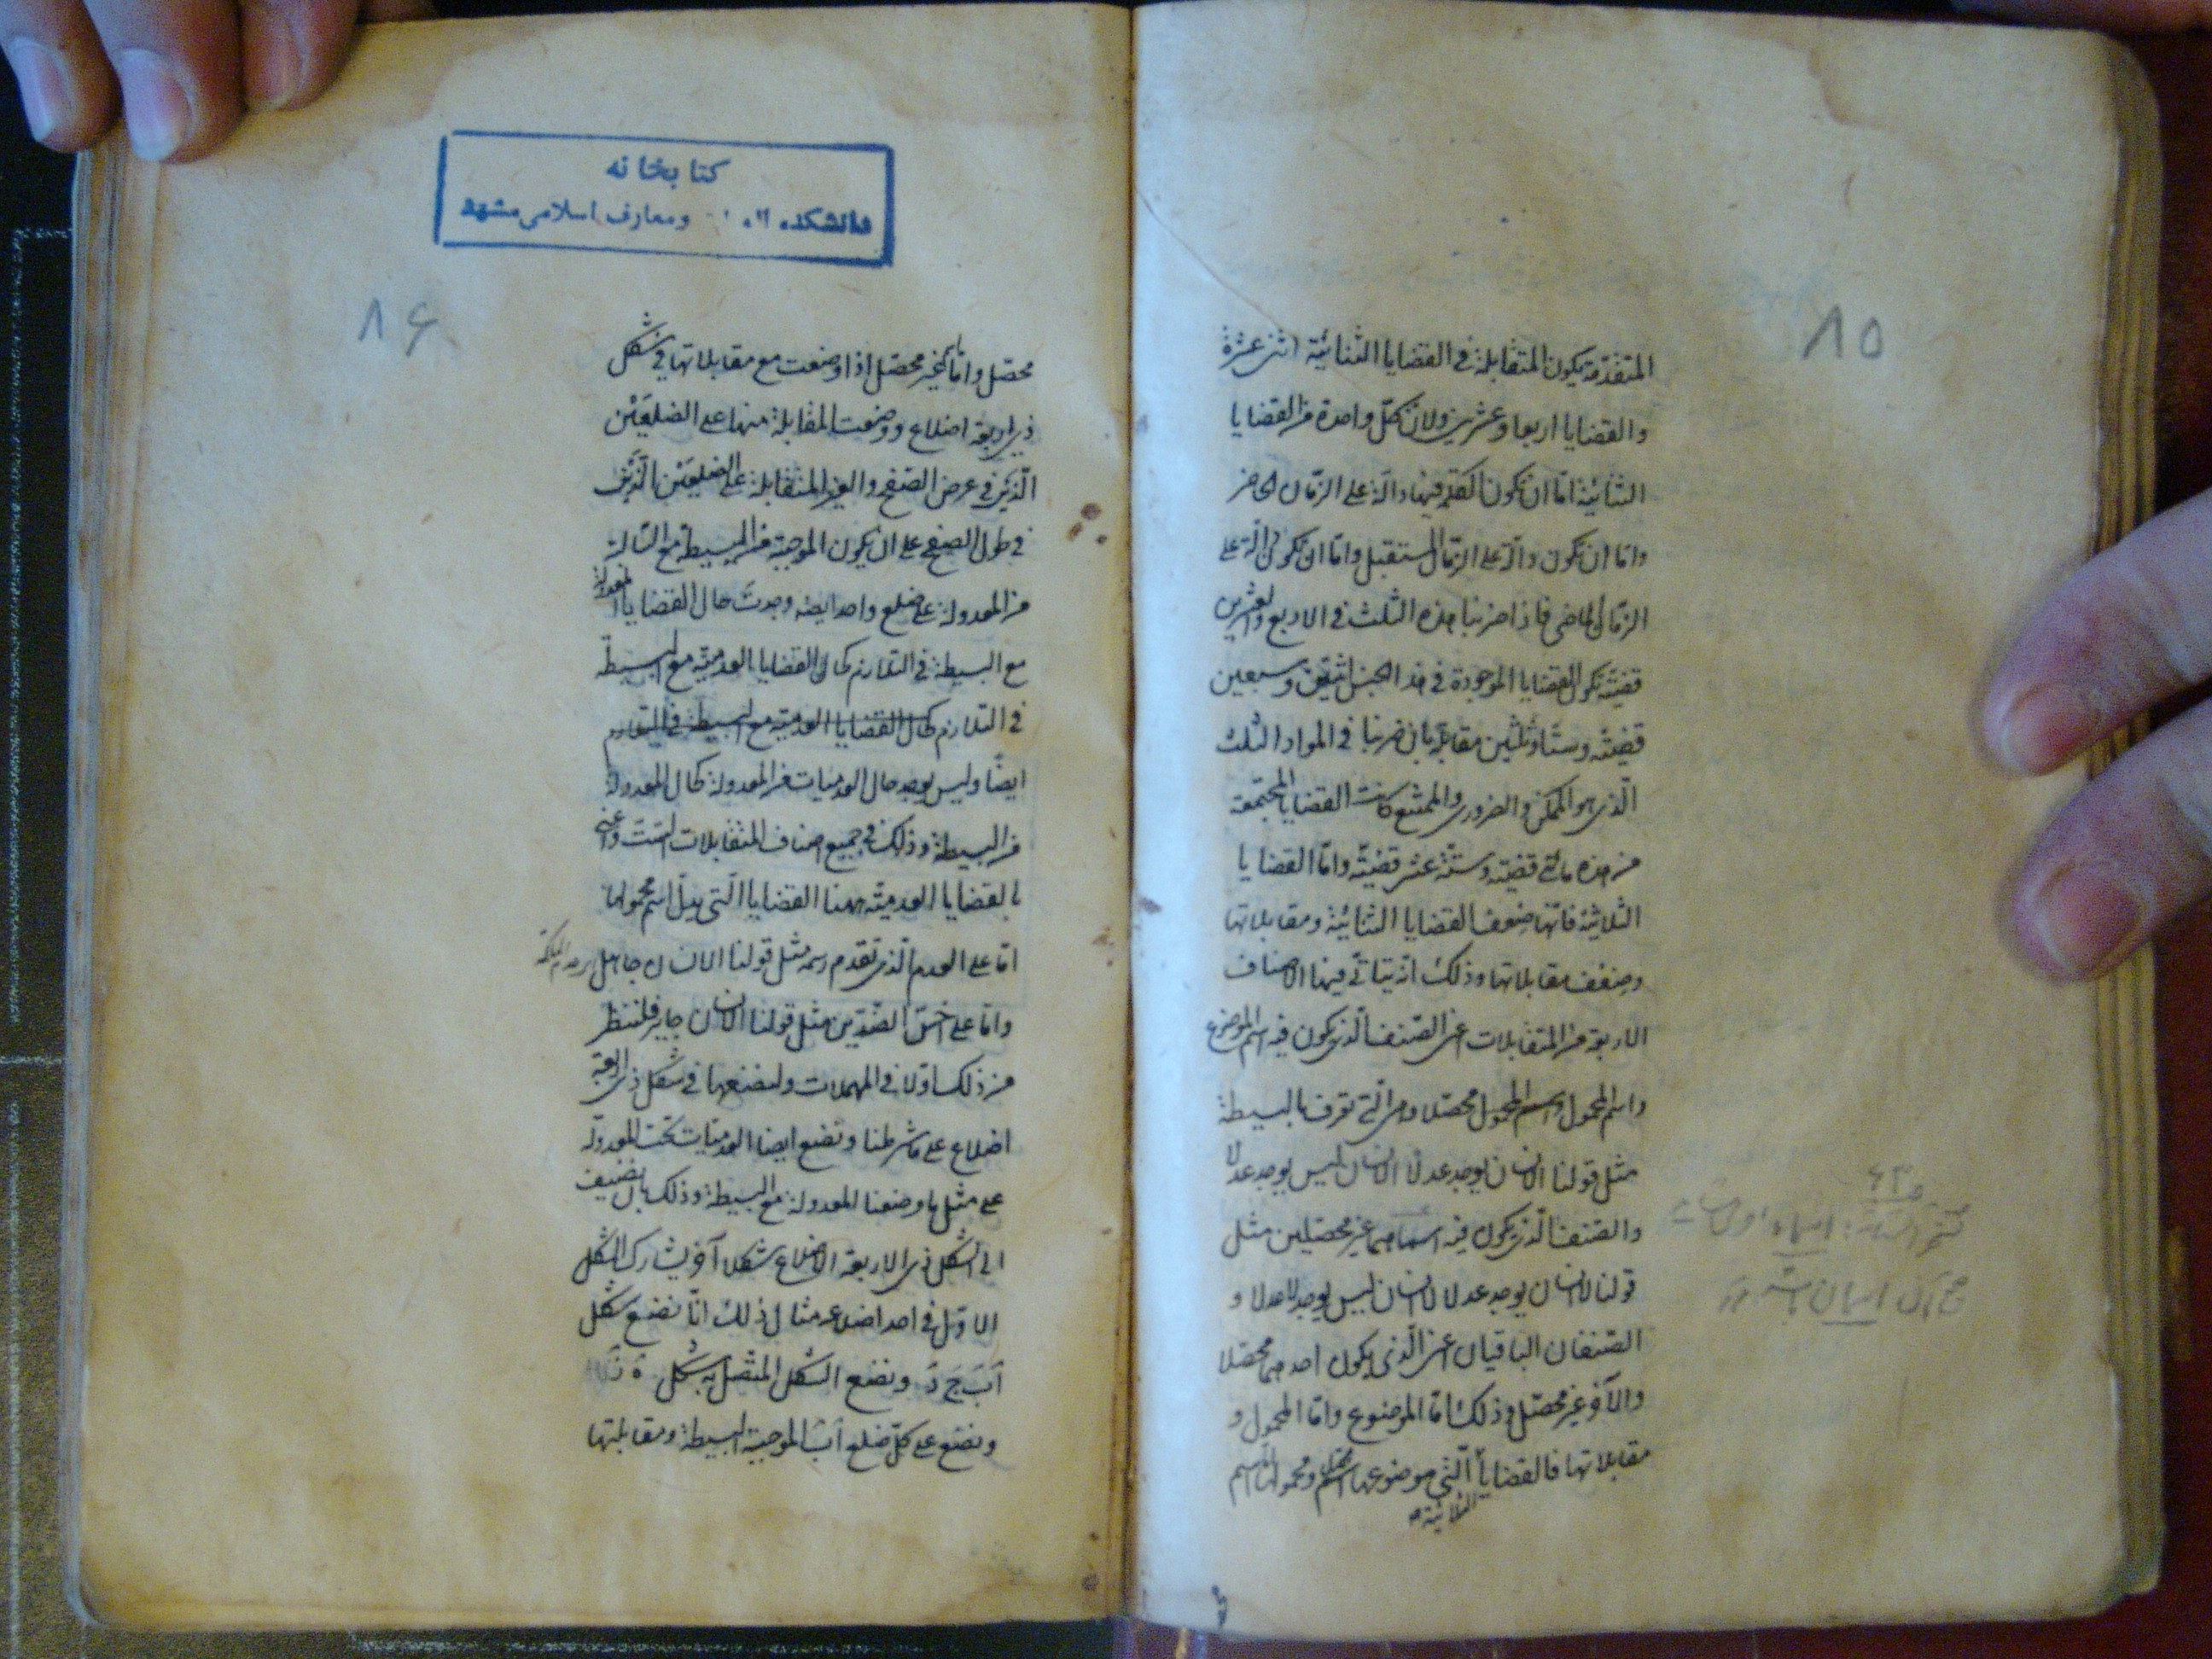 ٨٥
المتقدمة يكون المتقابلة في القضايا الثنائية اثنى عشرة
والقضايا اربعا وعشرين ولان كل واحدة من القضايا
الثنائية اما ان تكون الكلمة فيها دالة على الزمان الحاضر
واما ان تكون دالة على الزمان المستقبل واما ان تكون دالة على
الزمان الماضي فاذا ضربنا هذه الثلث في الاربع والعشرين
قضية تكون القضايا الموجودة في هذا الجنس اثنتين وسبعين
قضية وستا وثلثين مقابلة فان ضربنا في المواد الثلث
الذي هو الممكن والضروري والممتنع كانت القضايا المجتمعة
من هذه مائتي قضية وستة عشر قضية واما القضايا
الثلاثية فانها ضعف القضايا الثنائية ومقابلاتها
وضعف مقابلاتها وذلك انه يتاتى فيها الاصناف
الاربعة من المتقابلات اعني الصنف الذي يكون فيه اسم الموضوع
واسم المحمول واسم المحمول محصلا وهي التي تعرف بالبسيطة
مثل قولنا الانسان يوجد عدلا الانسان ليس يوجد عدلا
والصنف الذي يكون فيه اسماهما غير محصلين مثل
قولنا لا انسان يوجد عدلا لا انسان ليس يوجد لا عدلا و
الصنفان الباقيان اعني الذي يكون احدهما محصلا
والآخر غير محصل وذلك اما الموضوع واما المحمول و
مقابلاتها فالقضايا التي موضوعها اسم محصل ومحمولها اسم
الثلاثية
كتابخانه
دانشكده ومعارف اسلامى مشهد
٨۶
محصل واما غير محصل اذا وضعت مع مقابلاتها في شكل
ذي اربعة اضلاع ووضعت المقابلة منها على الضلعين
الذين في عرض الصفح والغير المتقابلة على الضلعين الذين
في طول الصفح على ان يكون الموجبة من البسيطة مع السالبة
من المعدولة على ضلع واحد ايضه وجدت حال القضايا المعدولة
مع البسيطة في التلازم كحال القضايا العدمية مع البسيطة
في التلازم كحال القضايا العدمية مع البسيطة في التلازم
ايضا وليس يوجد حال العدميات من المعدولة كحال المعدولة
من البسيطة وذلك في جميع اصناف المتقابلات الست واعني
بالقضايا العدمية ههنا القضايا التي يدل اسم محمولها
اما على العدم الذي تقدم رسمه مثل قولنا الانسان جاهل
واما على اخس الضدين مثل قولنا الانسان جاير فلننظر
من ذلك اولا في المهملات ولنضعها في شكل ذي اربعة
اضلاع على ما شرطنا ونضع ايضا العدميات تحت المعدولة
على مثل ما وضعنا المعدولة مع البسيطة وذلك بان نضيف
الى الشكل ذي الاربعة الاضلاع شكلا آخر يشارك الشكل
الاول في احد اضلاعه مثال ذلك انا نضع شكل
اَ بَ جَ دَ ونضع الشكل المتصل به شكل
ونضع على كل ضلع اَبَ الموجبة البسيطة ومقابلتها